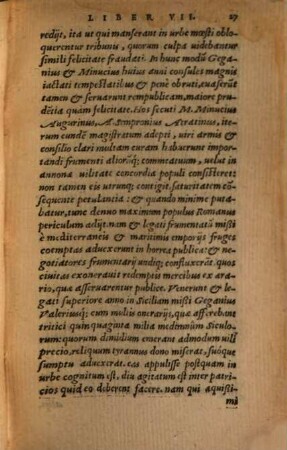 LIBER VII. 27
redijt, ita ut qui manserant in urbe mœsti oblo-
querentur tribunis, quorum culpa uidebantur
simili felicitate fraudati. In hunc modũ Gega-
nius & Minucius huius anni consules magnis
iactati tempestatibus & penè obruti, euaserũt
tamen & seruarunt rempublicam, maiore pru-
dẽtia quàm felicitate. Hos secuti M. Minucius
Augurinus, A. Sempronius Atratinus, ite-
rum eundẽ magistratum adepti, uiri armis &
consilio clari multam curam habuerunt impor-
tandi frumenti aliorũq; commeatuum, uelut in
annonæ uilitate concordia populi consisteret:
non tamen eis utrunq; contigit, saturitatem cõ-
sequente petulantia: & quando minime puta-
batur, tunc denuo maximum populus Romanus
periculum adijt. nam & legati frumentatũ miss-
i è mediterraneis & maritimis emporijs fruges
coemptas aduexerunt in horrea publica: & ne-
gotiatores frumentarij undiq; confluxerãt. quos
ciuitas exonerauit redemptis mercibus ex æra-
rio, quæ asseruarentur publicè. Venerunt & le-
gati superiore anno in Siciliam missi Geganius
Valeriusq; cum multis onerarijs, quæ afferebant
tritici quinquaginta milia medimnũm Siculo-
rum: quorum dimidium emerant admodum uili
precio, reliquum tyrannus dono miserat, suóque
sumptu aduexerat. eas appulisse postquam in
urbe cognitum est, diu agitatum est inter patri-
cios quid eo deberent facere. nam qui aquisti-
mi